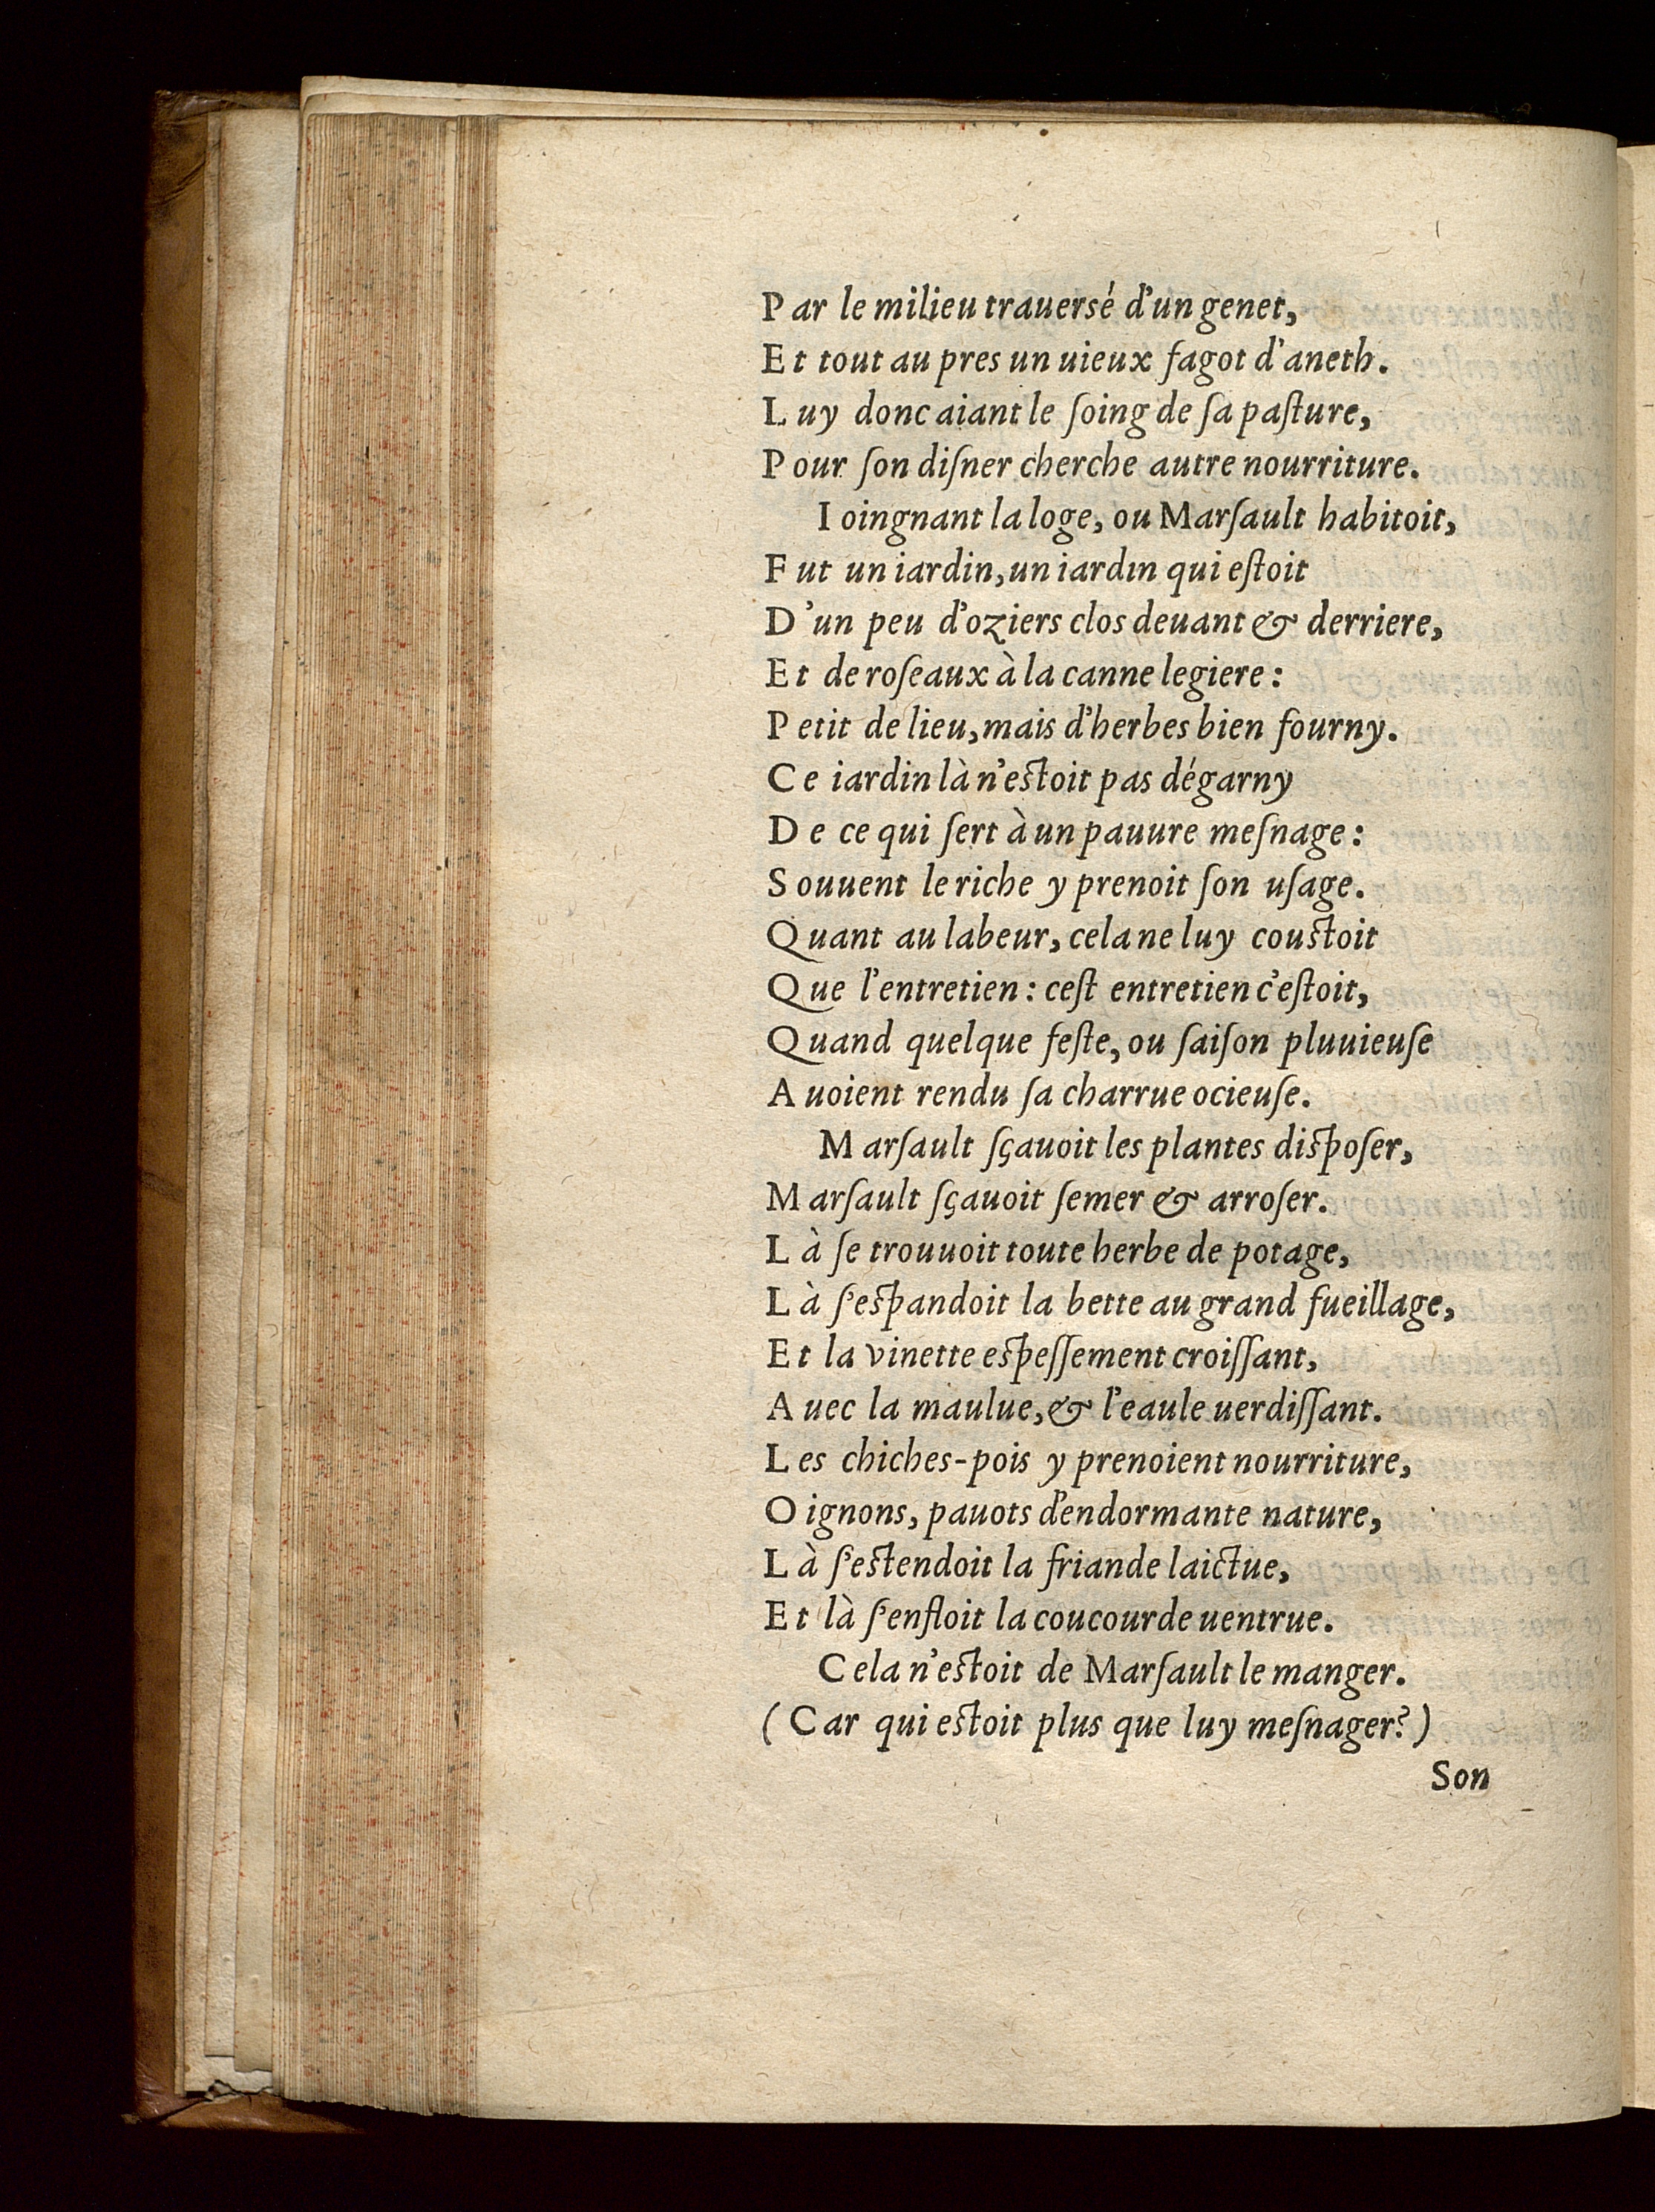 Par le milieu trauersé d'un genet,
Et tout au pres un uieux fagot d'aneth.
Luy donc aiant le ſoing de ſa paſture,
Pour ſon diſner cherche autre nourriture.
Ioingnant la loge, ou Marſault habitoit,
Fut un iardin, un iardin qui eſtoit
D'un peu d'oziers clos deuant & derriere,
Et de roſeaux à la canne legiere:
Petit de lieu, mais d'herbes bien fourny.
Ce iardin là n'eſtoit pas dégarny
De ce qui ſert à un pauure meſnage:
Souuent le riche y prenoit ſon uſage.
Quant au labeur, cela ne luy couſtoit
Que l'entretien: ceſt entretien c'eſtoit,
Quand quelque feſte, ou ſaiſon pluuieuſe
Auoient rendu ſa charrue ocieuſe.
Marſault ſçauoit les plantes diſpoſer,
Marſault ſçauoit ſemer & arroſer.
Là ſe trouuoit toute herbe de potage,
Là ſ'eſpandoit la bette au grand fueillage,
Et la vinette eſpeſſement croiſſant,
Auec la maulue, & l'eaule uerdiſſant.
Les chiches-pois y prenoient nourriture,
Oignons, pauots d'endormante nature,
Là ſ'eſtendoit la friande laictue,
Et là ſ'enfloit la coucourde uentrue.
Cela n'eſtoit de Marſault le manger.
(Car qui eſtoit plus que luy meſnager?)
Son